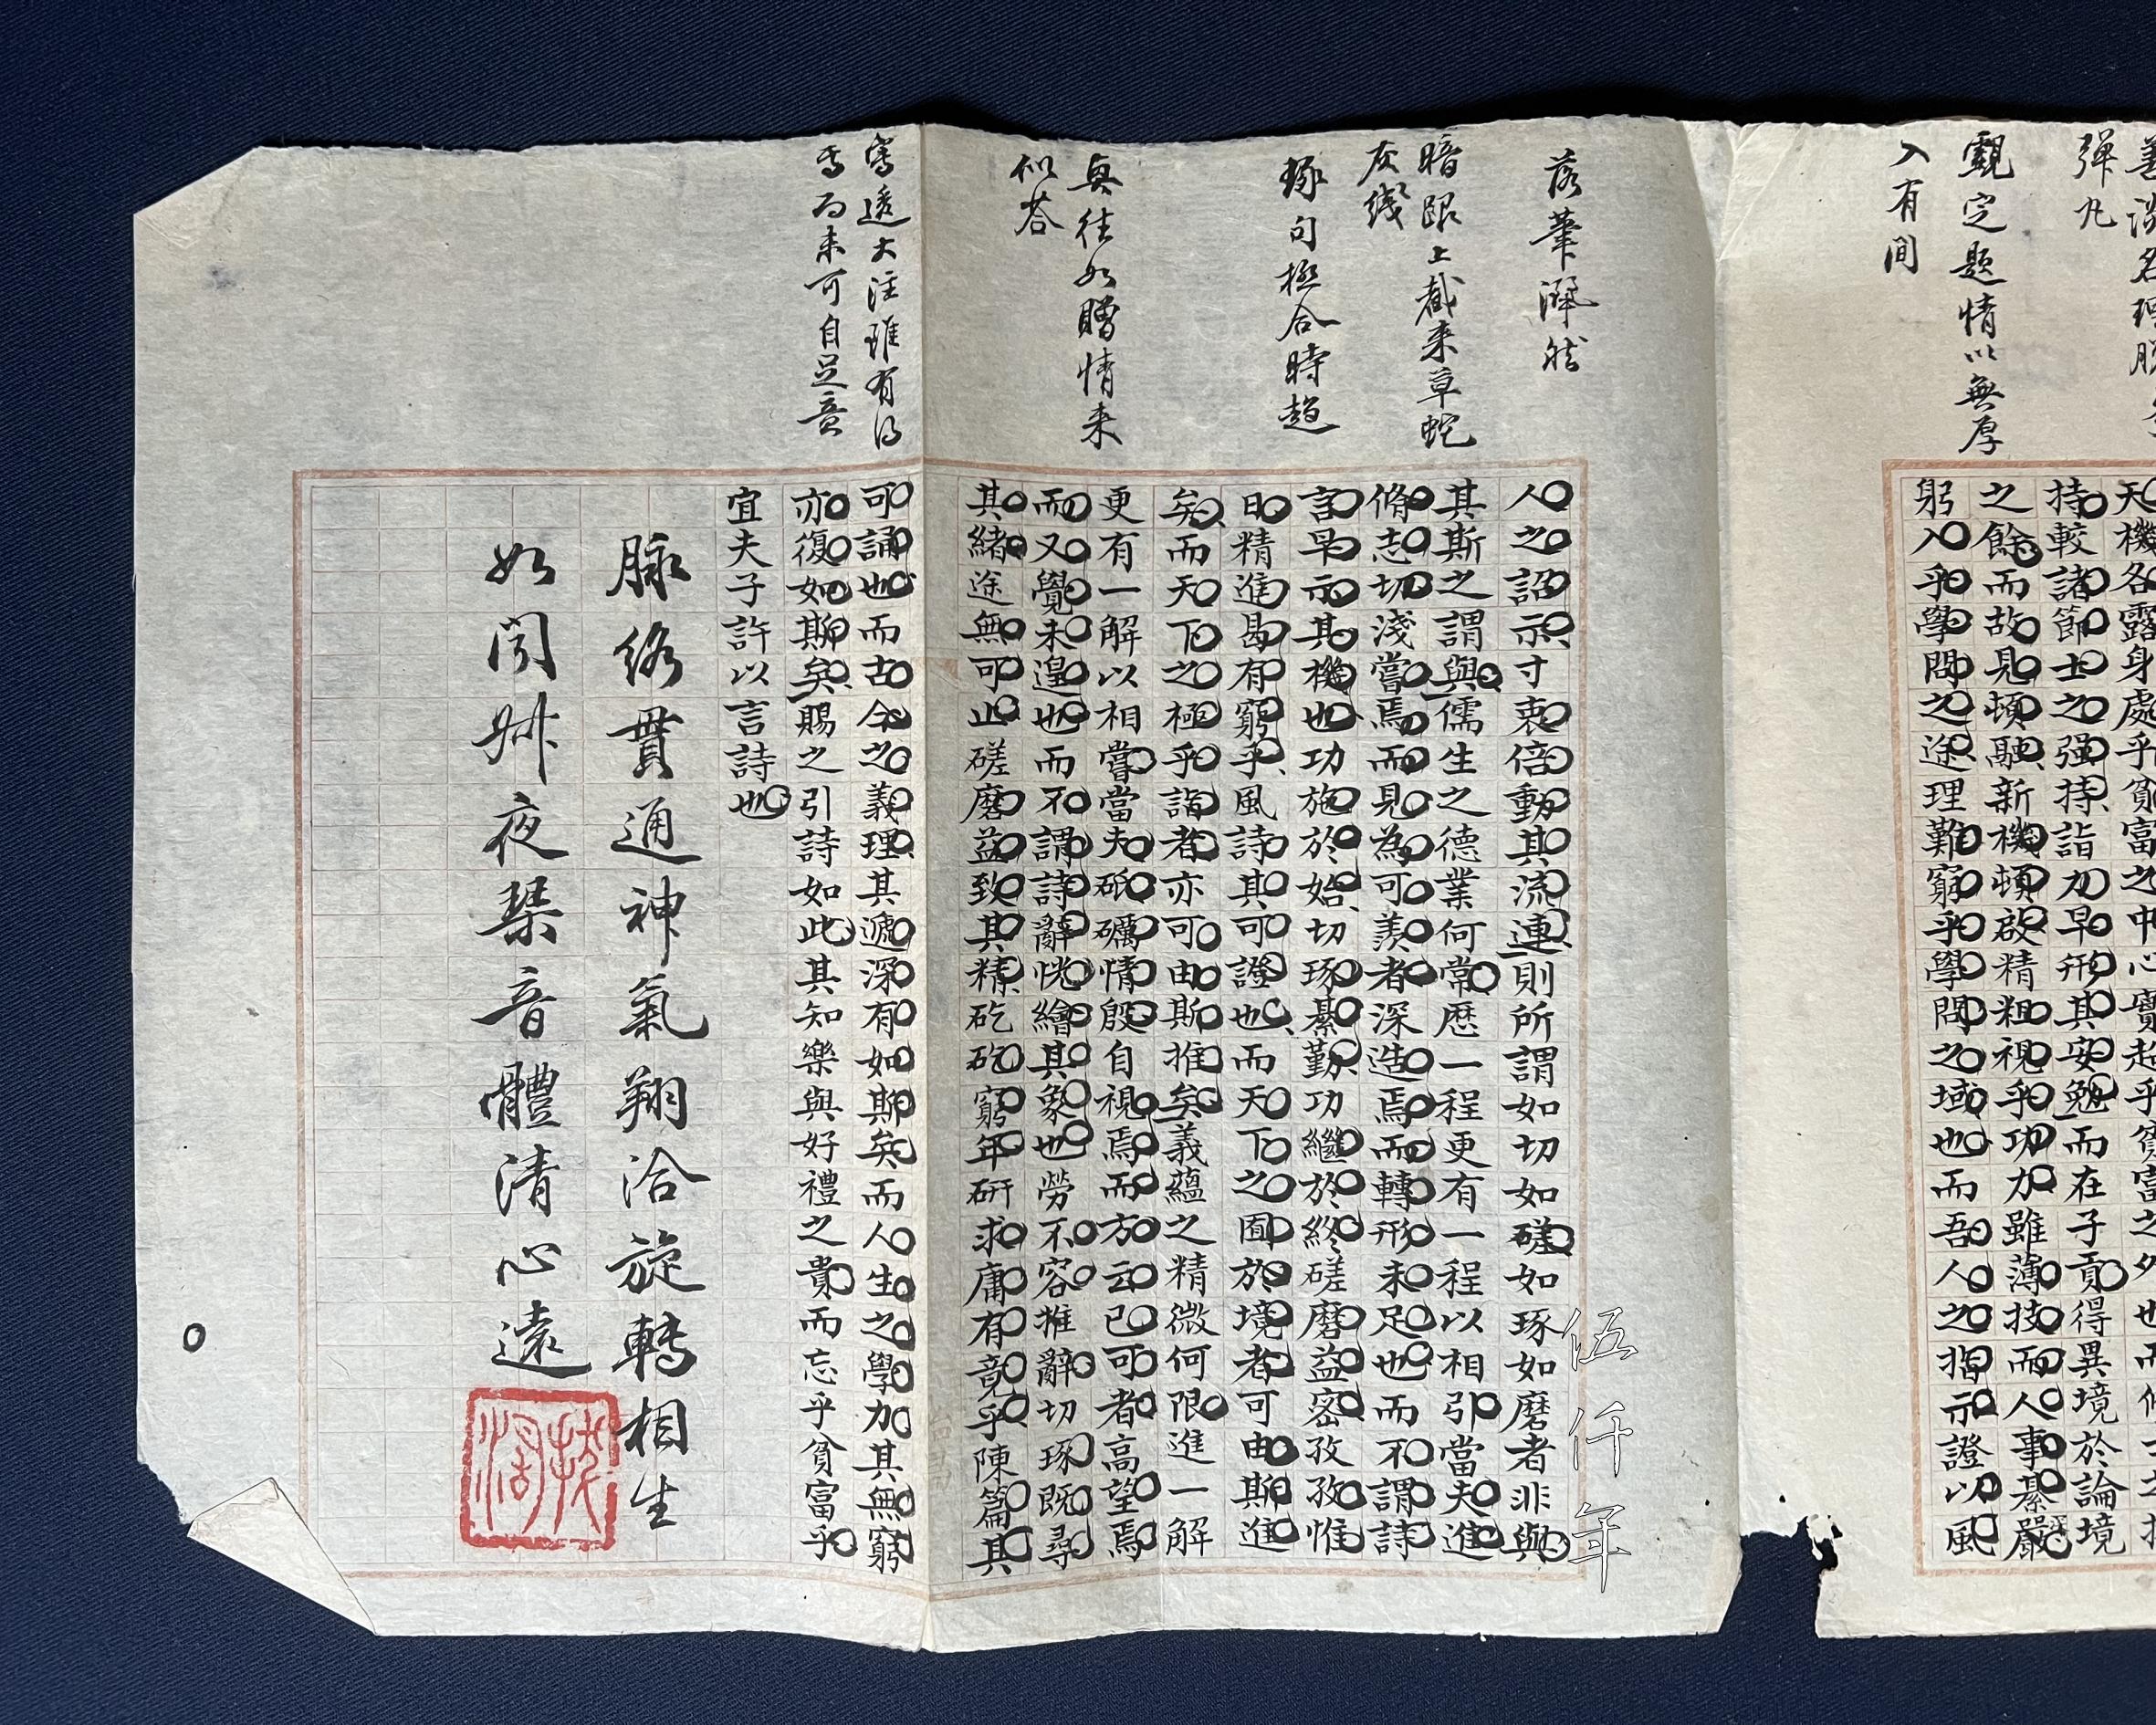 善談名理脫手
彈丸
觀定題情以無厚
入有間
天機各露身處乎貧富之中心實起乎貧富之外也而
持較諸節士之强持詣力早形其安勉而在子貢得異境於論境
之餘而故見頓融新機頓啟精粗視乎功力雖薄技而人事綦嚴
躬入乎學問之途理難窮乎學問之域也而吾人之指示證以風
落筆渾然
暗跟上截来草蛇
灰綫
琢句極合時趨
興往如贈情来
似荅
寫透大註雖有得
焉而未可自足意
人之詔示寸衷倍動其流連則所謂如切如磋如琢如磨者非與
其斯之謂與儒生之德業何常歷一程更有一程以相引當夫進
脩志切淺嘗焉而見為可羨者深造焉而轉形未足也而不謂詩
言早示其機也功施於始切琢綦勤功繼於終磋磨益密孜孜惟
日精進曷有窮乎風詩其可證也而天下之囿於境者可由斯進
矣而天下之極乎詣者亦可由斯推矣義蘊之精微何限進一解
更有一解以相嘗當夫砥礪情殷自視焉而方云已可者高望焉
而又覺未遑也而不謂詩辭恍繪其象也勞不容推辭切琢既尋
其緒途無可止磋磨益致其精矻矻窮年研求庸有竟乎陳篇其
可誦也而古今之義理其遞深有如斯矣而人生之學力加其無窮
亦復如斯矣賜之引詩如此其知樂與好禮之貴而忘乎貧富乎
宜夫子許以言詩也
脉絡貫通神氣翔洽旋轉相生
如聞叔夜琴音體清心遠
伍仟年